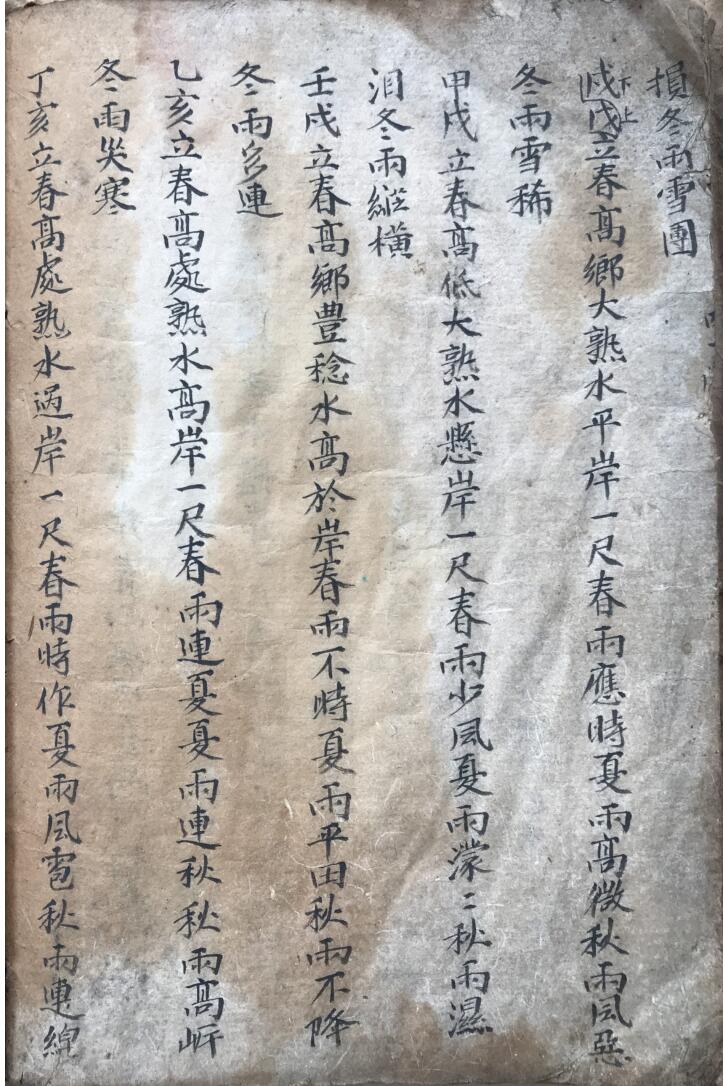 損冬雨雪團
戌戊立春高鄉大熟水平岸一尺春雨應時夏雨高微秋雨風惡
下上
冬雨雪稀
甲戌立春高低大熟水懸岸一尺春雨少風夏雨濛〻秋雨濕
泪冬雨縱橫
壬戌立春高鄉豊稔水高於岸春雨不時夏雨平田秋雨不降
冬雨多連
乙亥立春高處熟水高岸一尺春雨連夏夏雨連秋秋雨高
冬雨災寒
丁亥立春高處熟水過岸一尺春雨時作夏雨風雹秋雨連綿